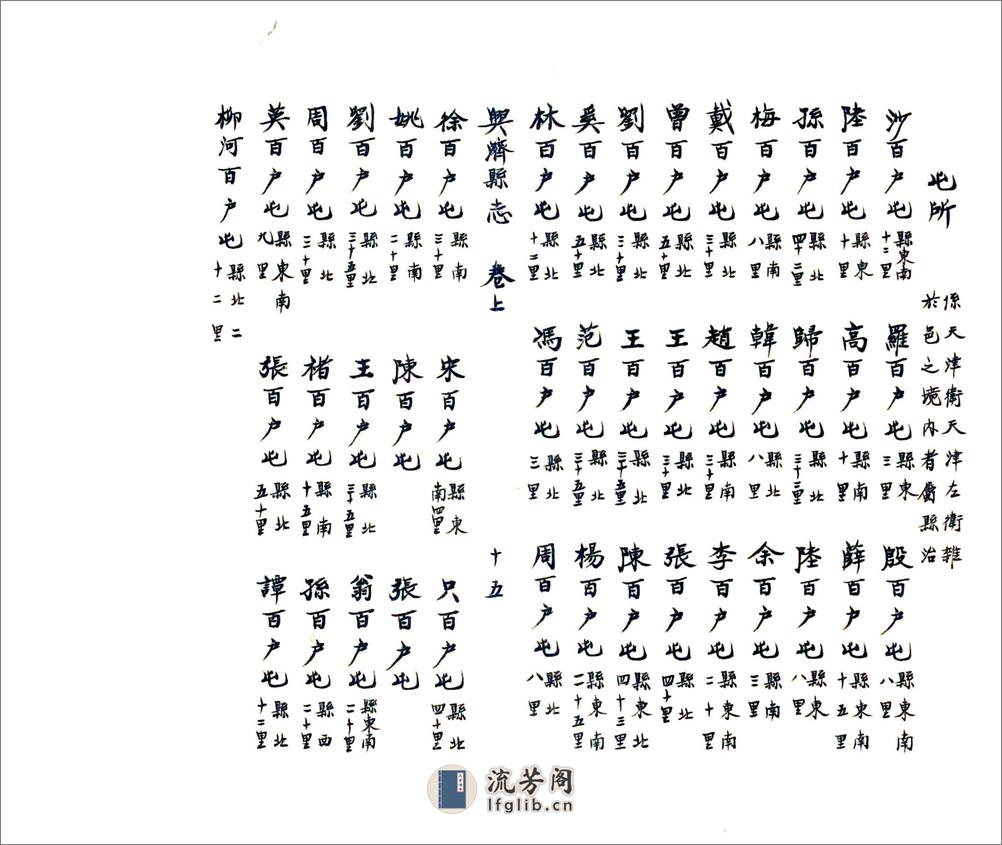 屯所 係天津衛天津左衛雜於邑之境內者屬縣治
沙百户屯 縣東南十二里 羅百户屯 縣東三里 殷百户屯 縣東南八里
陸百户屯 縣東十里 高百户屯 縣南十里 薛百户屯 縣東十五里
孫百户屯 縣北四十二里 歸百户屯 縣北三十三里 陸百户屯 縣東八里
梅百户屯 縣南八里 韓百户屯 縣北八里 余百户屯 縣南三里
戴百户屯 縣北三十里 趙百户屯 縣南三十里 李百户屯 縣東南二十里
曾百户屯 縣北五十里 王百户屯 縣北三十里 張百户屯 縣北四十里
劉百户屯 縣北三十里 王百户屯 縣北三十五里 陳百户屯 縣東北四十三里
奚百户屯 縣北五十里 范百户屯 縣北三十五里 楊百户屯 縣東南二十五里
林百户屯 縣北十二里 馮百户屯 縣北三里 周百户屯 縣北八里
興濟縣志 卷上 十五
徐百户屯 縣南三十里 宋百户屯 縣東南四里 只百户屯 縣北四十里
姚百户屯 縣南二十里 陳百户屯 張百户屯
劉百户屯 縣北三十五里 王百户屯 縣北三十五里 翁百户屯 縣東南二十里
周百户屯 縣北三十里 褚百户屯 縣南十五里 孫百户屯 縣西二十里
英百户屯 縣東南九里 張百户屯 縣北五十里 譚百户屯 縣北十二里
柳河百户屯 縣北二十二里
流芳阁
lfglib.cn